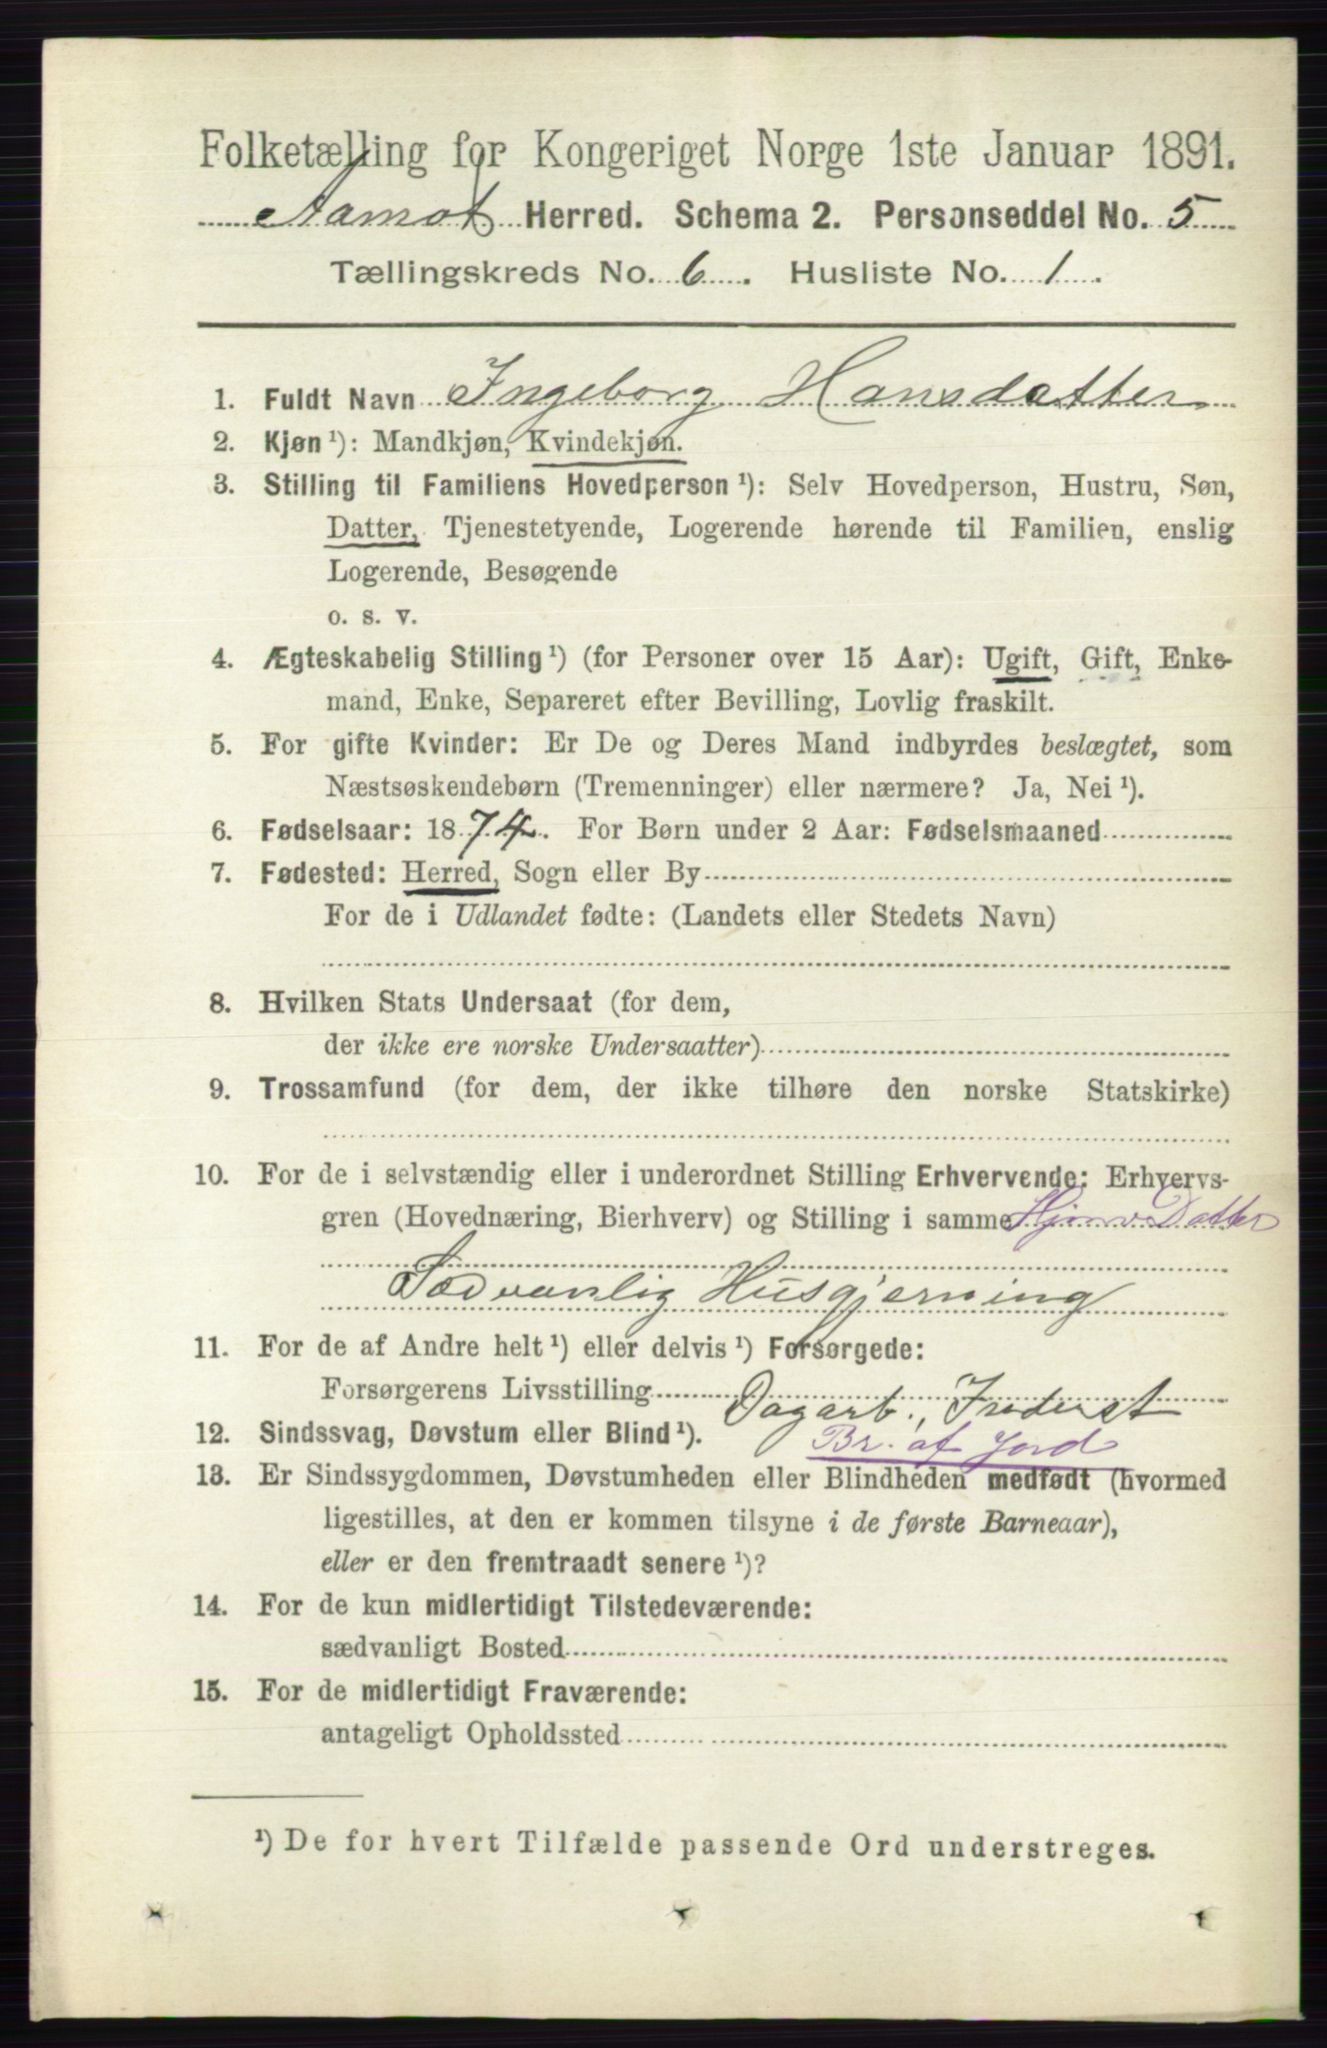 Folketælling for Kongeriget Norge 1ste Januar 1891.
Aamot Herred. Schema 2. Personseddel No. 5
Tællingskreds No. 6. Husliste No. 1.
1. Fuldt Navn Ingeborg Hansdatter
2. Kjøn ¹): Mandkjøn, Kvindekjøn.
3. Stilling til Familiens Hovedperson ¹): Selv Hovedperson, Hustru, Søn,
Datter, Tjenestetyende, Logerende hørende til Familien, enslig
Logerende, Besøgende
o. s. v.
4. Ægteskabelig Stilling ¹) (for Personer over 15 Aar): Ugift, Gift, Enke-
mand, Enke, Separeret efter Bevilling, Lovlig fraskilt.
5. For gifte Kvinder: Er De og Deres Mand indbyrdes beslægtet, som
Næstsøskendebørn (Tremenninger) eller nærmere? Ja, Nei ¹).
6. Fødselsaar: 1874. For Børn under 2 Aar: Fødselsmaaned
7. Fødested: Herred, Sogn eller By
For de i Udlandet fødte: (Landets eller Stedets Navn)
8. Hvilken Stats Undersaat (for dem,
der ikke ere norske Undersaatter)
9. Trossamfund (for dem, der ikke tilhøre den norske Statskirke)
10. For de i selvstændig eller i underordnet Stilling Erhvervende: Erhvervs-
gren (Hovednæring, Bierhverv) og Stilling i samme Hjemv. Datter
Sædvanlig Husgjerning
11. For de af Andre helt ¹) eller delvis ¹) Forsørgede:
Forsørgerens Livsstilling Dagarb.,
12. Sindssvag, Døvstum eller Blind ¹). Br. af Jord
13. Er Sindssygdommen, Døvstumheden eller Blindheden medfødt (hvormed
ligestilles, at den er kommen tilsyne i de første Barneaar),
eller er den fremtraadt senere ¹)?
14. For de kun midlertidigt Tilstedeværende:
sædvanligt Bosted
15. For de midlertidigt Fraværende:
antageligt Opholdssted
¹) De for hvert Tilfælde passende Ord understreges.